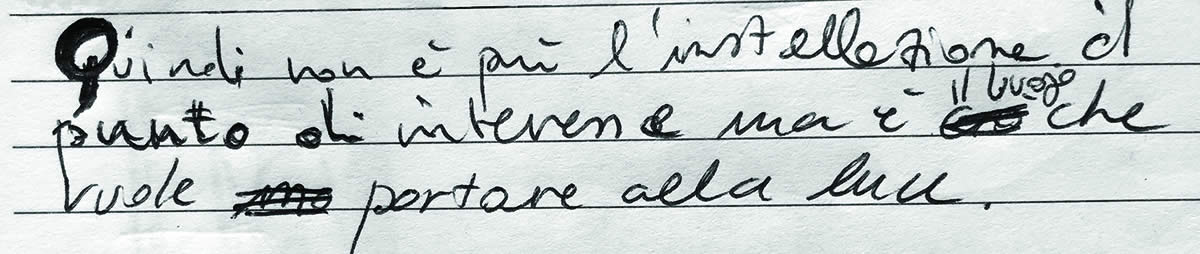 Quindi non è più l'installazione il
punto di interesse ma è il luogo che
vuole portare alla luce.